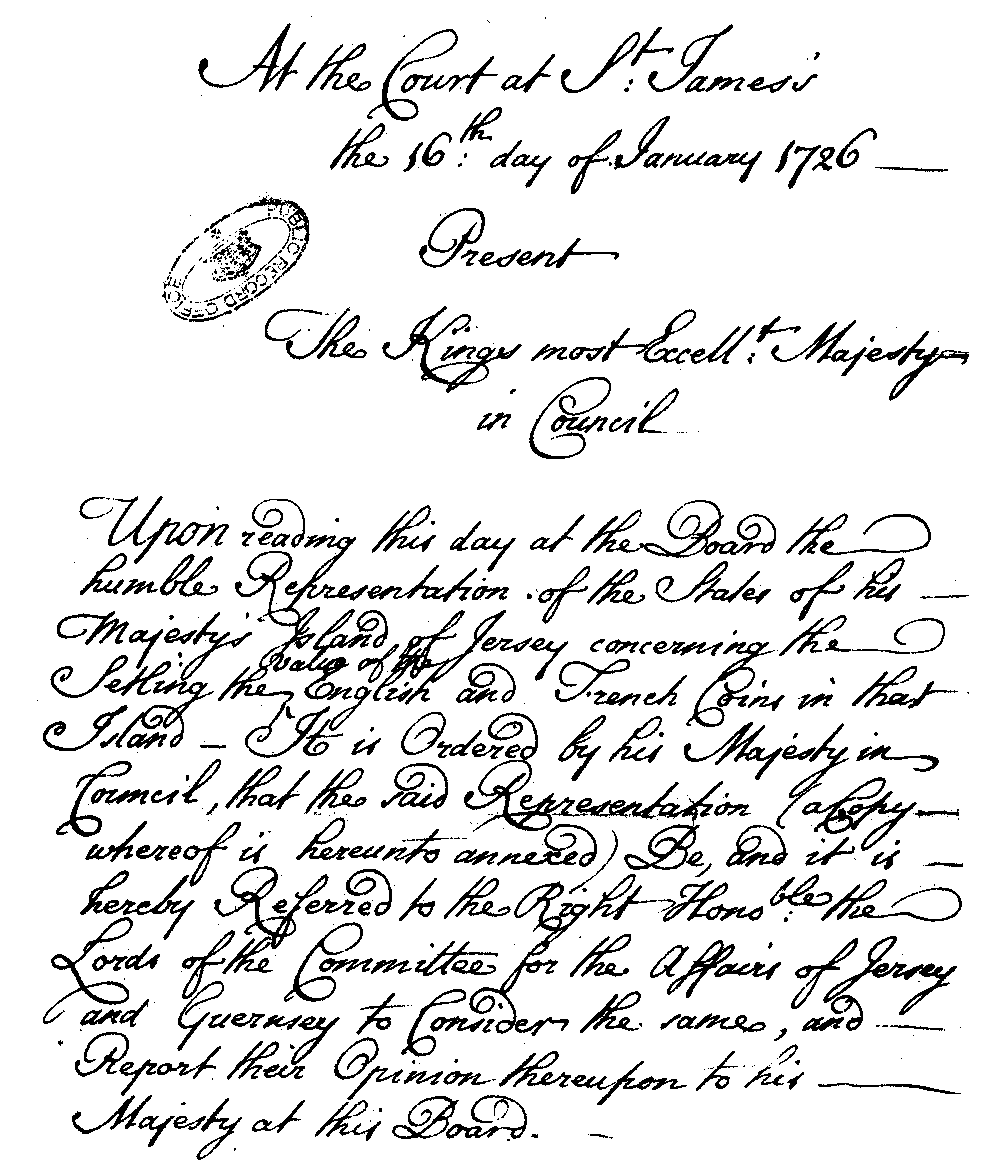 At the Court at St. James's
the 16th. day of January 1726
PUBLIC RECORD OFFICE
Present
The Kings most Excell.t Majesty
in Council
Upon reading this day at the Board the
humble Representation of the States of his
Majesty's Island of Jersey concerning the
value of the
Setling the English and French Coins in that
Island - It is Ordered by his Majesty in
Council, that the said Representation (a Copy
whereof is hereunto annexed) Be, and it is
hereby Referred to the Right Honoble. the
Lords of the Committee for the Affairs of Jersey
and Guernsey to Consider the same, and
Report their Opinion thereupon to his
Majesty at this Board.